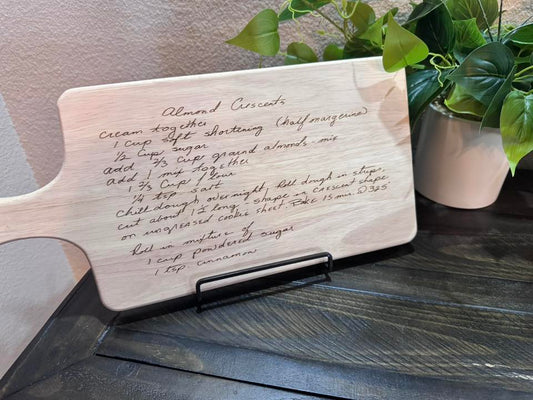 Almond Crescents
cream together
1 cup soft shortening (half margerine)
1/2 cup sugar
add 2/3 cup grand almonds - mix
add & mix together
1 2/3 cup flour
1/4 tsp salt
Chill dough overnight, Roll dough in strips,
cut about 1 1/2 long & shape in crescent shape
on ungreased cookie sheet. Bake 15 min. @ 325°
Roll in mixture of
1 cup powdered sugar
1 tsp cinnamon